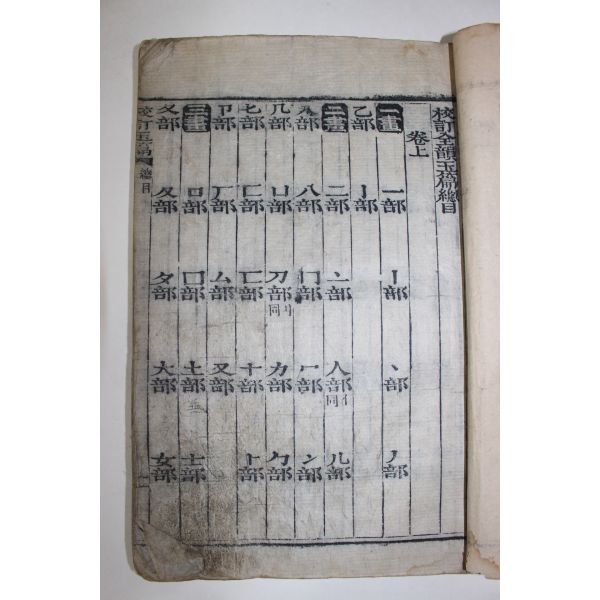 校訂全韻玉篇總目
卷上
一畫 一部 丨部 丶部 丿部
乙部 亅部
二畫 二部 亠部 人部亻同 儿部
入部 八部 冂部 冖部 冫部
几部 凵部 刀部刂同 力部 勹部
匕部 匚部 匸部 十部 卜部
卩部 厂部 厶部 又部
三畫 口部 囗部 土部 士部
夂部 夊部 夕部 大部 女部
校訂玉篇 總目 一